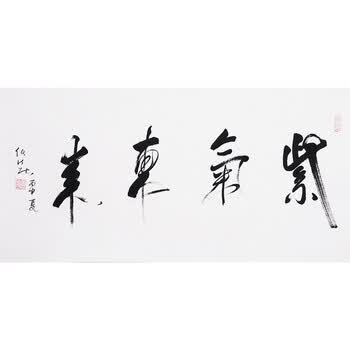 紫氣東来
丙申夏